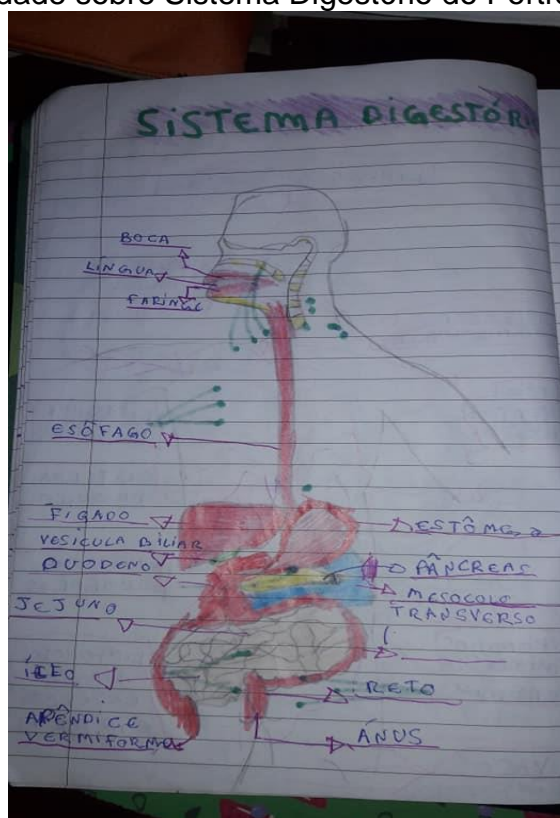 dado sobre Sistema Digestório do Portfó
SISTEMA DIGESTÓR
BOCA
LÍNGUA
FARINGE
ESÔFAGO
FIGADO
VESICULA BILIAR
DUODENO
JEJUNO
ÍLEO
APÊNDICE
VERMIFORME
ESTÔMG
PÂNCREAS
MESOCOLO
TRANSVERSO
RETO
ÂNUS